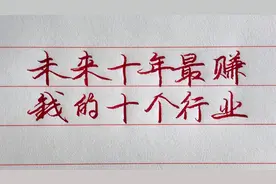 未来十年最赚
钱的十个行业